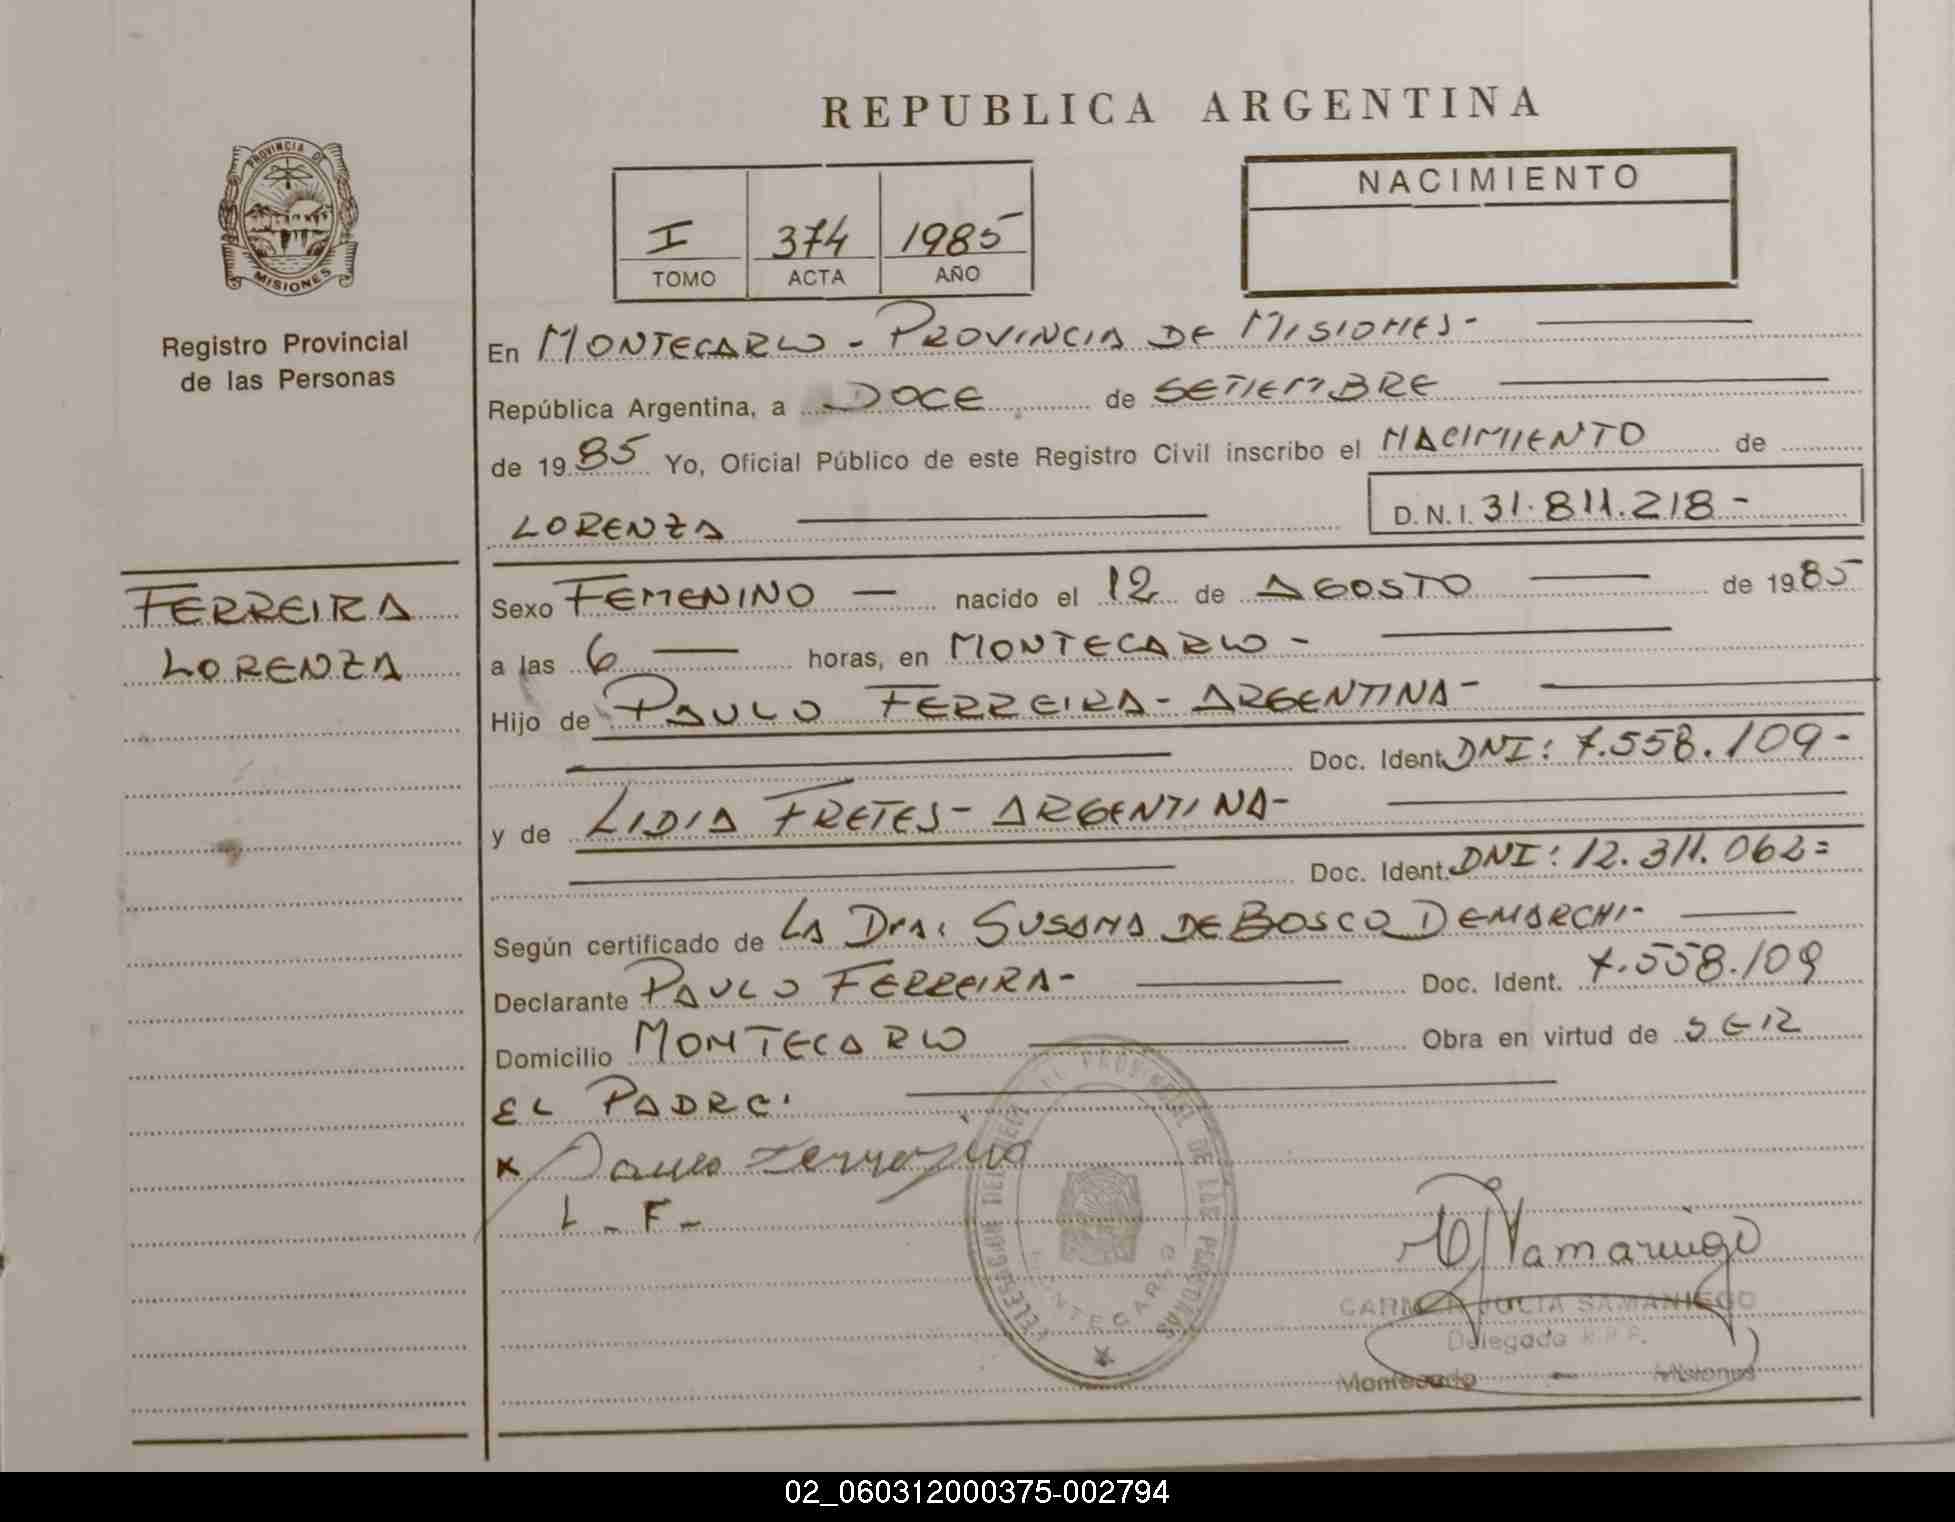 REPUBLICA ARGENTINA
PROVINCIA DE
MISIONES
Registro Provincial
de las Personas
I 374 1985
TOMO ACTA AÑO
NACIMIENTO
En MONTECARLO - PROVINCIA DE MISIONES-
República Argentina, a DOCE de SETIEMBRE
de 1985 Yo, Oficial Público de este Registro Civil inscribo el NACIMIENTO de
LORENZA D.N.I. 31.811.218-
FERREIRA
LORENZA
Sexo FEMENINO — nacido el 12 de AGOSTO de 1985
a las 6 — horas, en MONTECARLO -
Hijo de PAULO FERREIRA - ARGENTINA-
Doc. Ident. DNI: 7.558.109-
y de LIDIA FRETES - ARGENTINA-
Doc. Ident. DNI: 12.311.062=
Según certificado de LA Dra. SUSANA DE BOSCO DEMARCHI-
Declarante PAULO FERREIRA- Doc. Ident. 7.558.109
Domicilio MONTECARLO Obra en virtud de SER
EL PADRE.
x
L - F -
PROVINCIAL DE LAS PERSONAS
MONTECARLO
CARMEN JULIA SAMANIEGO
Delegada R.P.P.
Montecarlo - Misiones
02_060312000375-002794